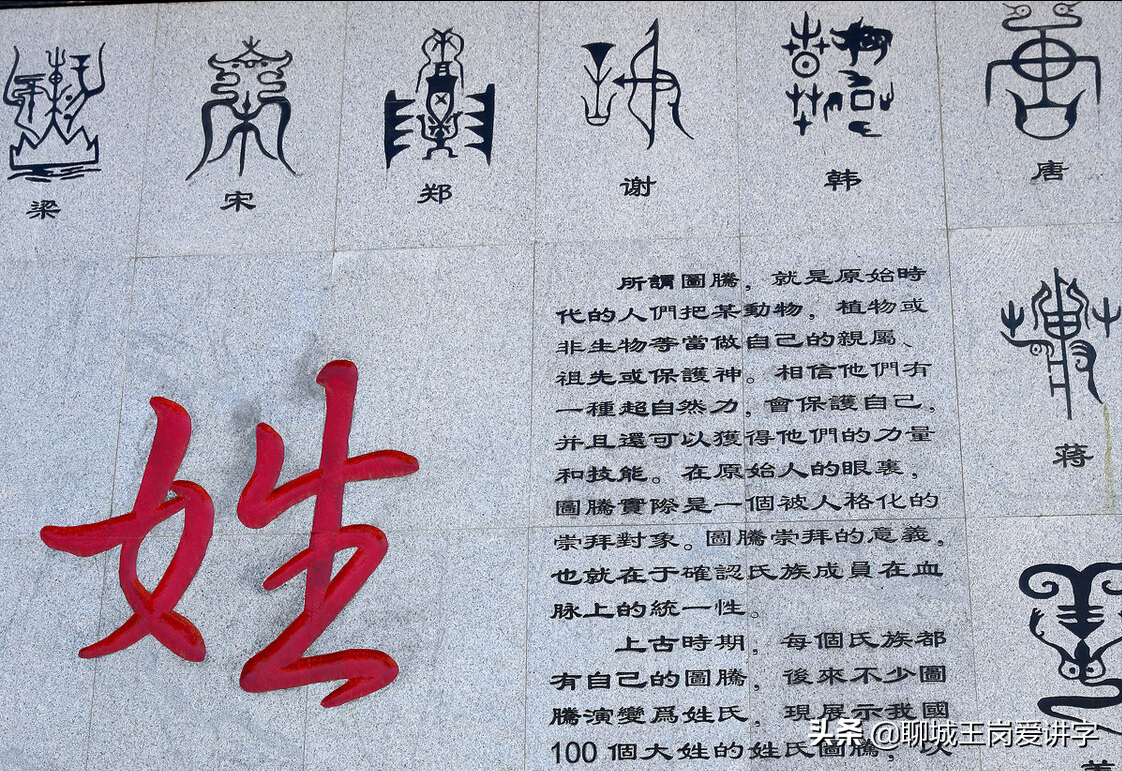 梁
宋
郑
谢
韩
唐
蒋
姓
所謂圖騰，就是原始時
代的人們把某動物，植物或
非生物等當做自己的親屬、
祖先或保護神。相信他們有
一種超自然力，會保護自己，
并且還可以獲得他們的力量
和技能。在原始人的眼裏，
圖騰實際是一個被人格化的
崇拜對象。圖騰崇拜的意義，
也就在于確認氏族成員在血
脉上的統一性。
上古時期，每個氏族都
有自己的圖騰，後來不少圖
騰演變爲姓氏，現展示我國
100個大姓的姓氏圖騰，以
头条 @聊城王岗爱讲字